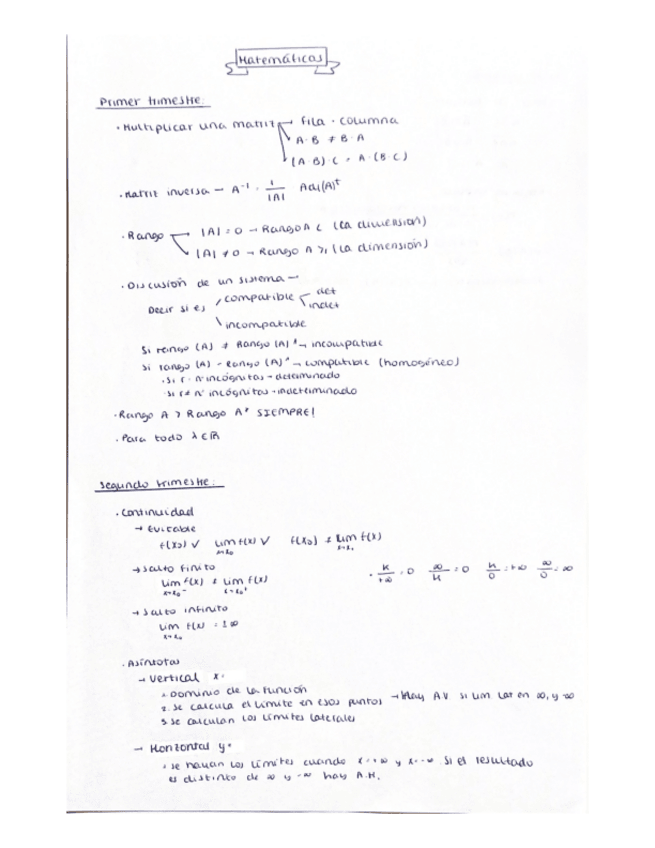 Matemáticas
Primer trimestre:
· Multiplicar una matriz → fila · columna
A·B ≠ B·A
(A·B)·C = A·(B·C)
· Matriz inversa → A⁻¹ = 1/|A| Adj(A)ᵗ
· Rango → |A| = 0 → Rango A < (la dimensión)
|A| ≠ 0 → Rango A ≥ (la dimensión)
· Discusión de un sistema →
Decir si es compatible det
indet
incompatible
Si rango (A) ≠ Rango (A)* → incompatible
Si rango (A) = Rango (A)* → compatible (homogéneo)
· Si r = nº incógnitas → determinado
· Si r ≠ nº incógnitas → indeterminado
· Rango A > Rango A* SIEMPRE!
· Para todo λ ∈ ℝ
Segundo trimestre:
· Continuidad
→ Evitable
f(x₀) ✓ lim f(x) ✓ f(x₀) ≠ lim f(x)
x→x₀ x→x₀
→ Salto finito
lim f(x) ≠ lim f(x)
x→x₀⁻ x→x₀⁺
· K/+∞ = 0 ∞/K = 0 K/0 = +∞ ∞/0 = ∞
→ Salto infinito
lim f(x) = ±∞
x→x₀
· Asíntotas
→ Vertical x=
1. Dominio de la función
2. Se calcula el límite en esos puntos → Hay AV si lim en ∞, y -∞
3. Se calculan los límites laterales
→ Horizontal y=
· Se hallan los límites cuando x→+∞ y x→-∞ Si el resultado
es distinto de ∞ y -∞ hay A.H.